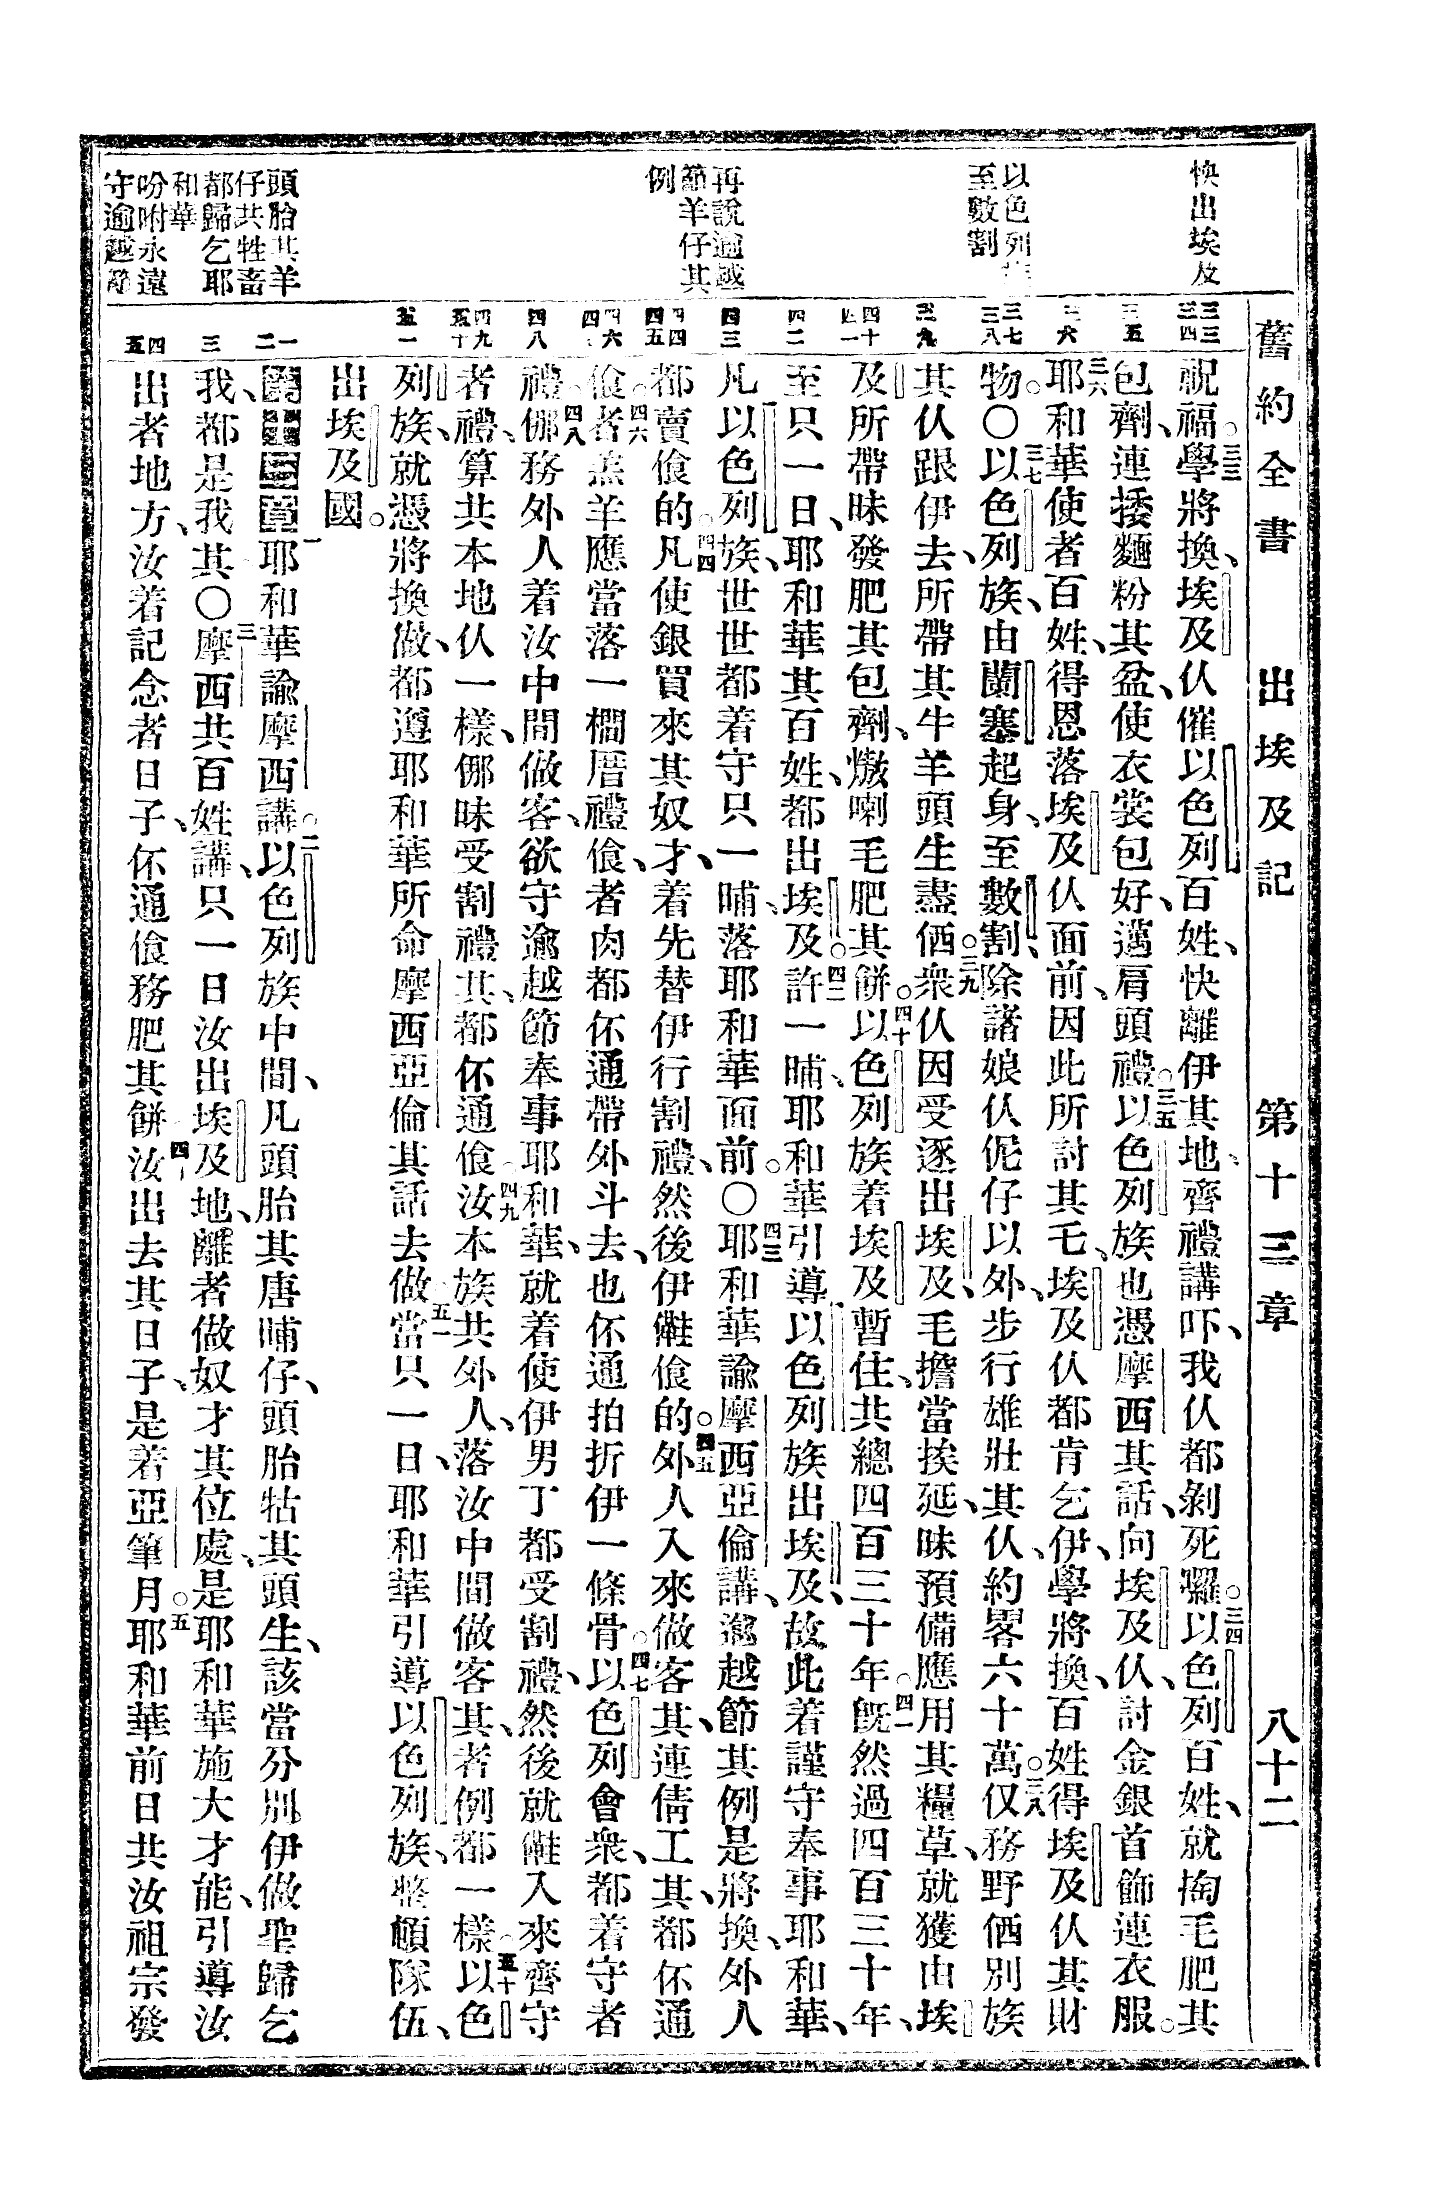 舊約全書　出埃及記　第十三章　八十二
快出埃及
以色列族
至數割
再說逾越
節羊仔其
例
頭胎其羊
仔共牲畜
都歸乞耶
和華
吩咐永遠
守逾越節
三三 三四 三五 三六 三七 三八 三九 四十 四一 四二 四三 四四 四五 四六 四七 四八 四九 五十 五一 一 二 三 四 五
祝福。三三學將換、埃及仈催以色列百姓、快離伊其地、齊禮講吓、我仈都剝死囉。三四以色列百姓、就掏毛肥其
包劑、連捼麵粉其盆、使衣裳包好、邁肩頭禮。三五以色列族也憑摩西其話、向埃及仈、討金銀首飾連衣服。
三六耶和華使者百姓、得恩落埃及仈面前、因此所討其乇、埃及仈都肯乞伊、學將換、百姓得埃及仈其財
物。〇三七以色列族、由蘭塞起身、至數割、除諸娘仈伲仔以外、步行雄壯其仈、約畧六十萬。三八仅務野㑚別族
其仈跟伊去、所帶其牛羊頭生盡㑚。三九衆仈因受逐出埃及、毛擔當挨延、昧預備應用其糧草、就獲由埃
及所帶昧發肥其包劑、𤆬喇毛肥其餅。四十以色列族着埃及暫住、共總四百三十年。四一旣然過四百三十年、
至只一日、耶和華其百姓、都出埃及。四二許一晡、耶和華引導以色列族出埃及、故此着謹守奉事耶和華、
凡以色列族、世世都着守只一晡、落耶和華面前。〇四三耶和華諭摩西亞倫講、逾越節其例是將換、外人
都賣飡的。四四凡使銀買來其奴才、着先替伊行割禮、然後伊䧹飡的。四五外人入來做客其、連倩工其、都伓通
飡。四六者羔羊應當落一櫩厝禮飡、者肉都伓通帶外斗去、也伓通拍折伊一條骨。四七以色列會衆、都着守者
禮。四八倻務外人着汝中間做客、欲守逾越節奉事耶和華、就着使伊男丁都受割禮、然後就䧹入來齊守
者禮、算共本地仈一樣、倻昧受割禮其、都伓通飡。四九汝本族共外人、落汝中間做客其、者例都一樣。五十以色
列族、就憑將換做、都遵耶和華所命摩西亞倫其話去做。五一當只一日、耶和華引導以色列族、整頓隊伍、
出埃及國。
第十三章 一耶和華諭摩西講。二以色列族中間、凡頭胎其唐晡仔、頭胎牯其頭生、該當分別伊做聖歸乞
我、都是我其〇三摩西共百姓講、只一日汝出埃及地、離者做奴才其位處、是耶和華施大才能、引導汝
出者地方、汝着記念者日子、伓通飡務肥其餅。四汝出去其日子、是着亞筆月。五耶和華前日共汝祖宗發